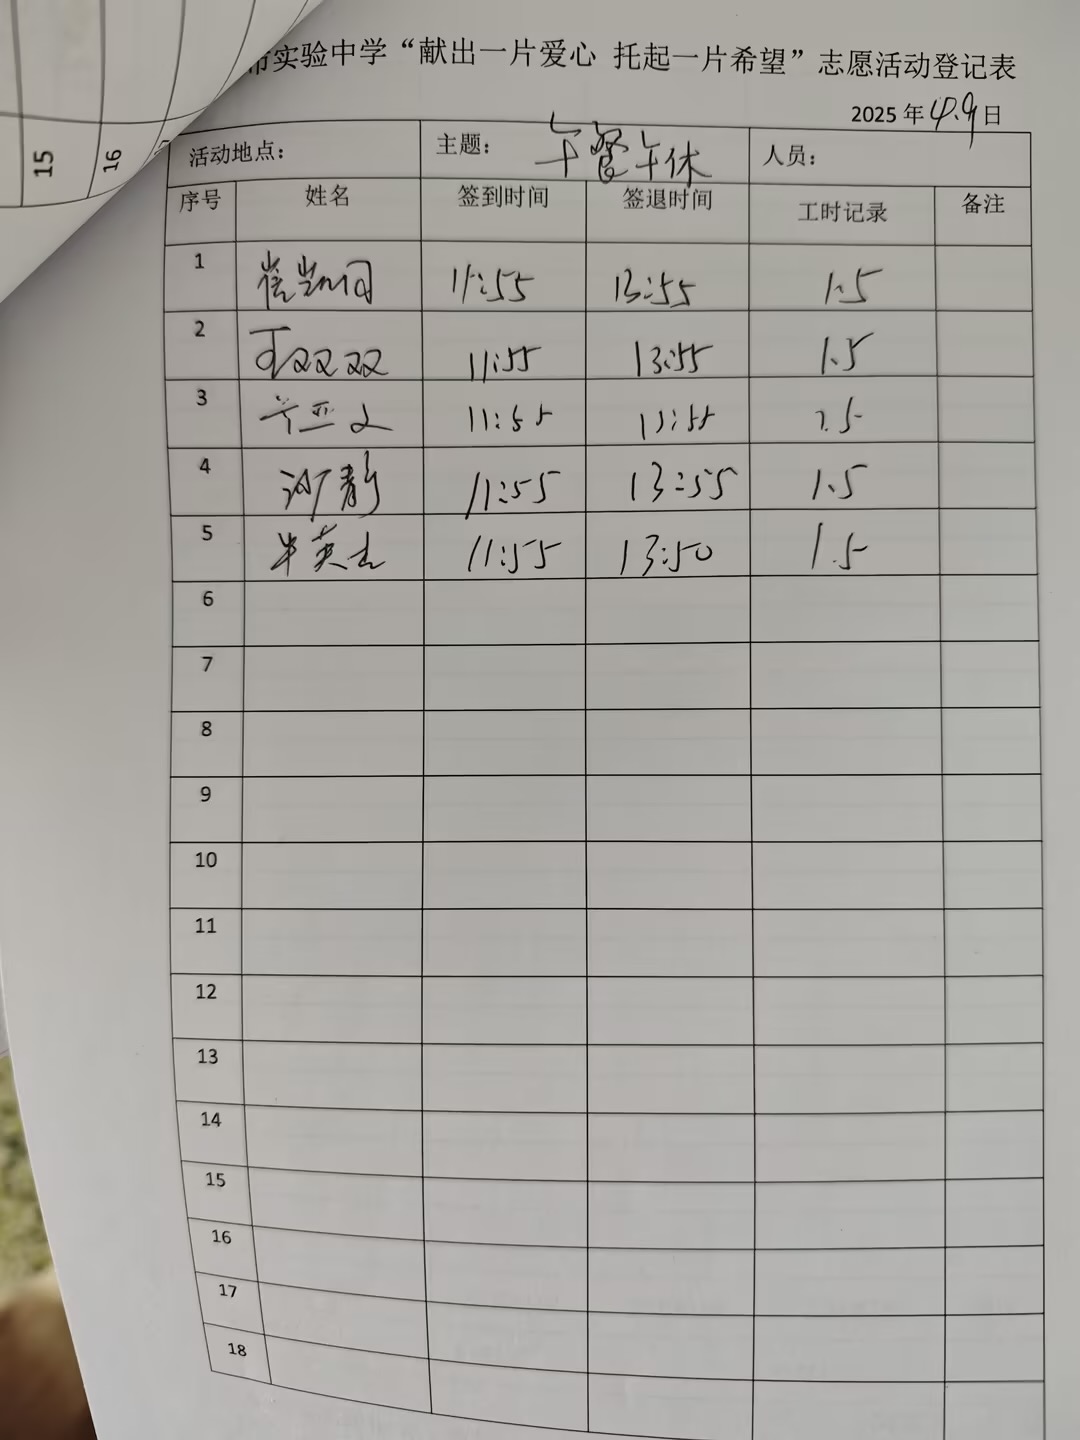 实验中学“献出一片爱心 托起一片希望”志愿活动登记表
2025 年 4.9 日
活动地点： 主题： 午餐午休 人员：
序号 姓名 签到时间 签退时间 工时记录 备注
1 11:55 13:55 1.5
2 双双 11:55 13:55 1.5
3 11:55 13:55 1.5
4 静 11:55 13:55 1.5
5 英 11:55 13:50 1.5
6
7
8
9
10
11
12
13
14
15
16
17
18
15
16